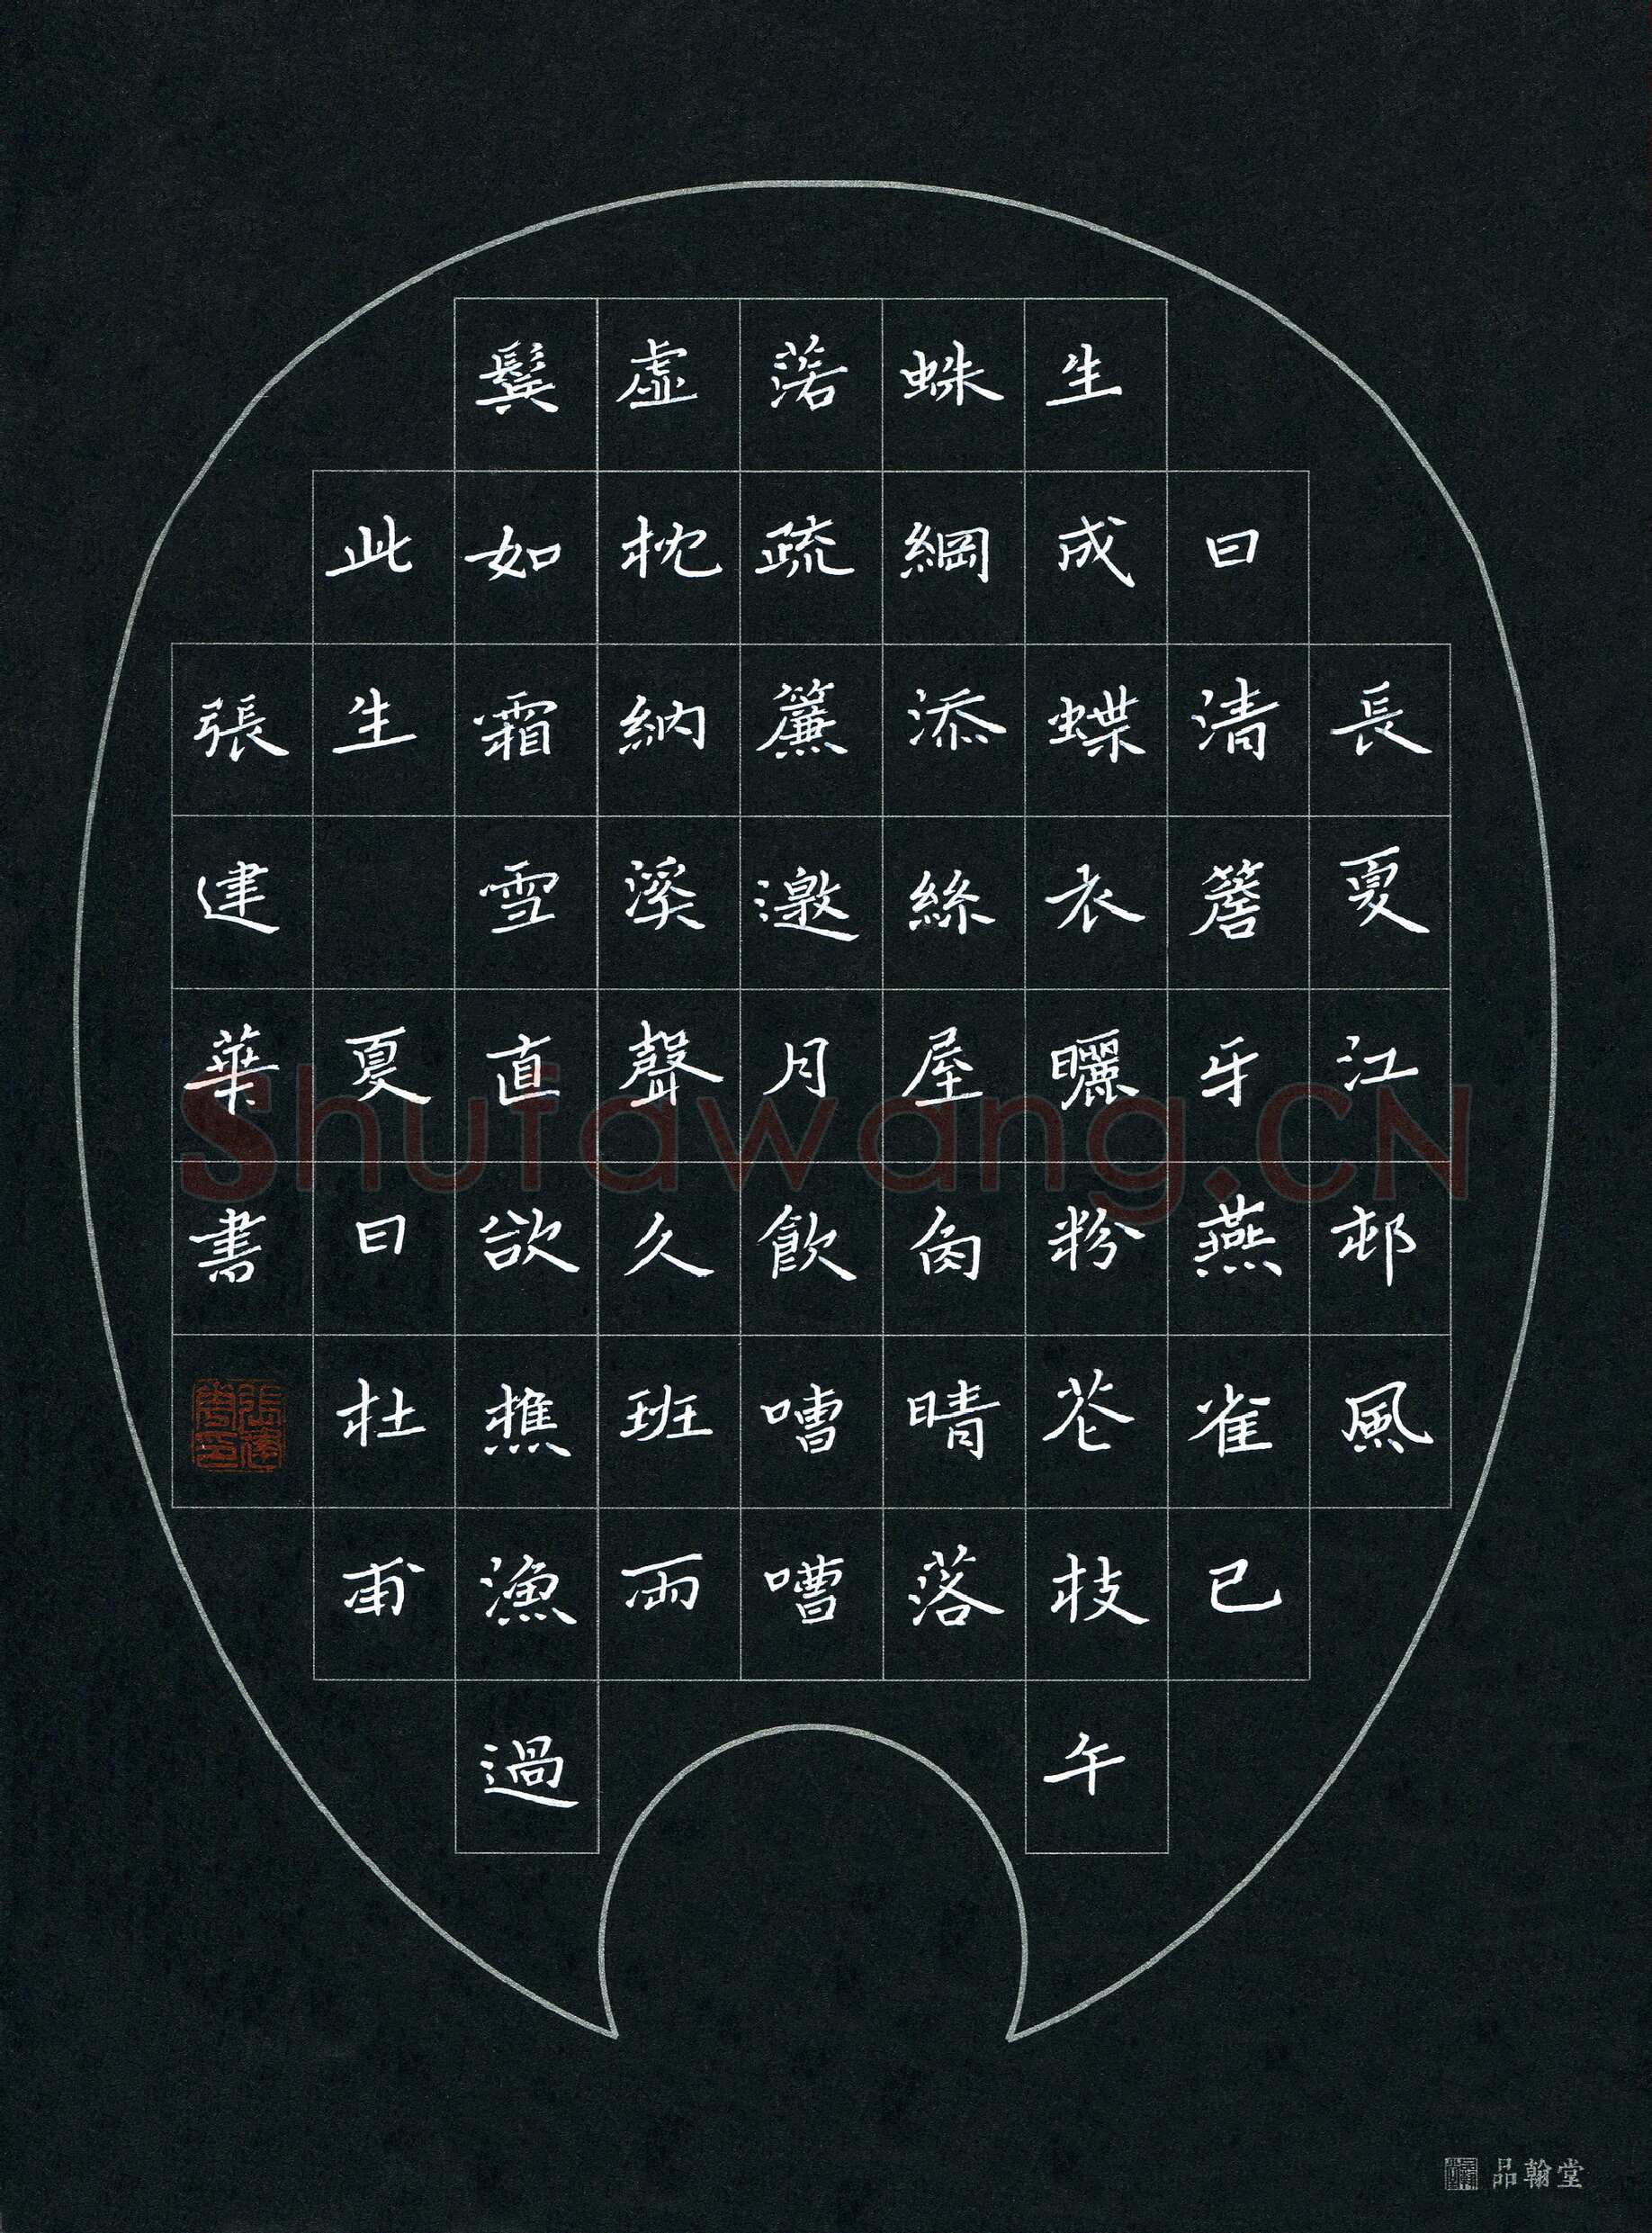 長夏江邨風
日清簷牙燕雀已
生成蝶衣曬粉花枝午
蛛網添絲屋角晴落
落疏簾邀月飲嘈嘈
虛枕納溪聲久班兩
鬢如霜雪直欲樵漁過
此生 夏日杜甫
張建華書
Shufawang.CN
品翰堂